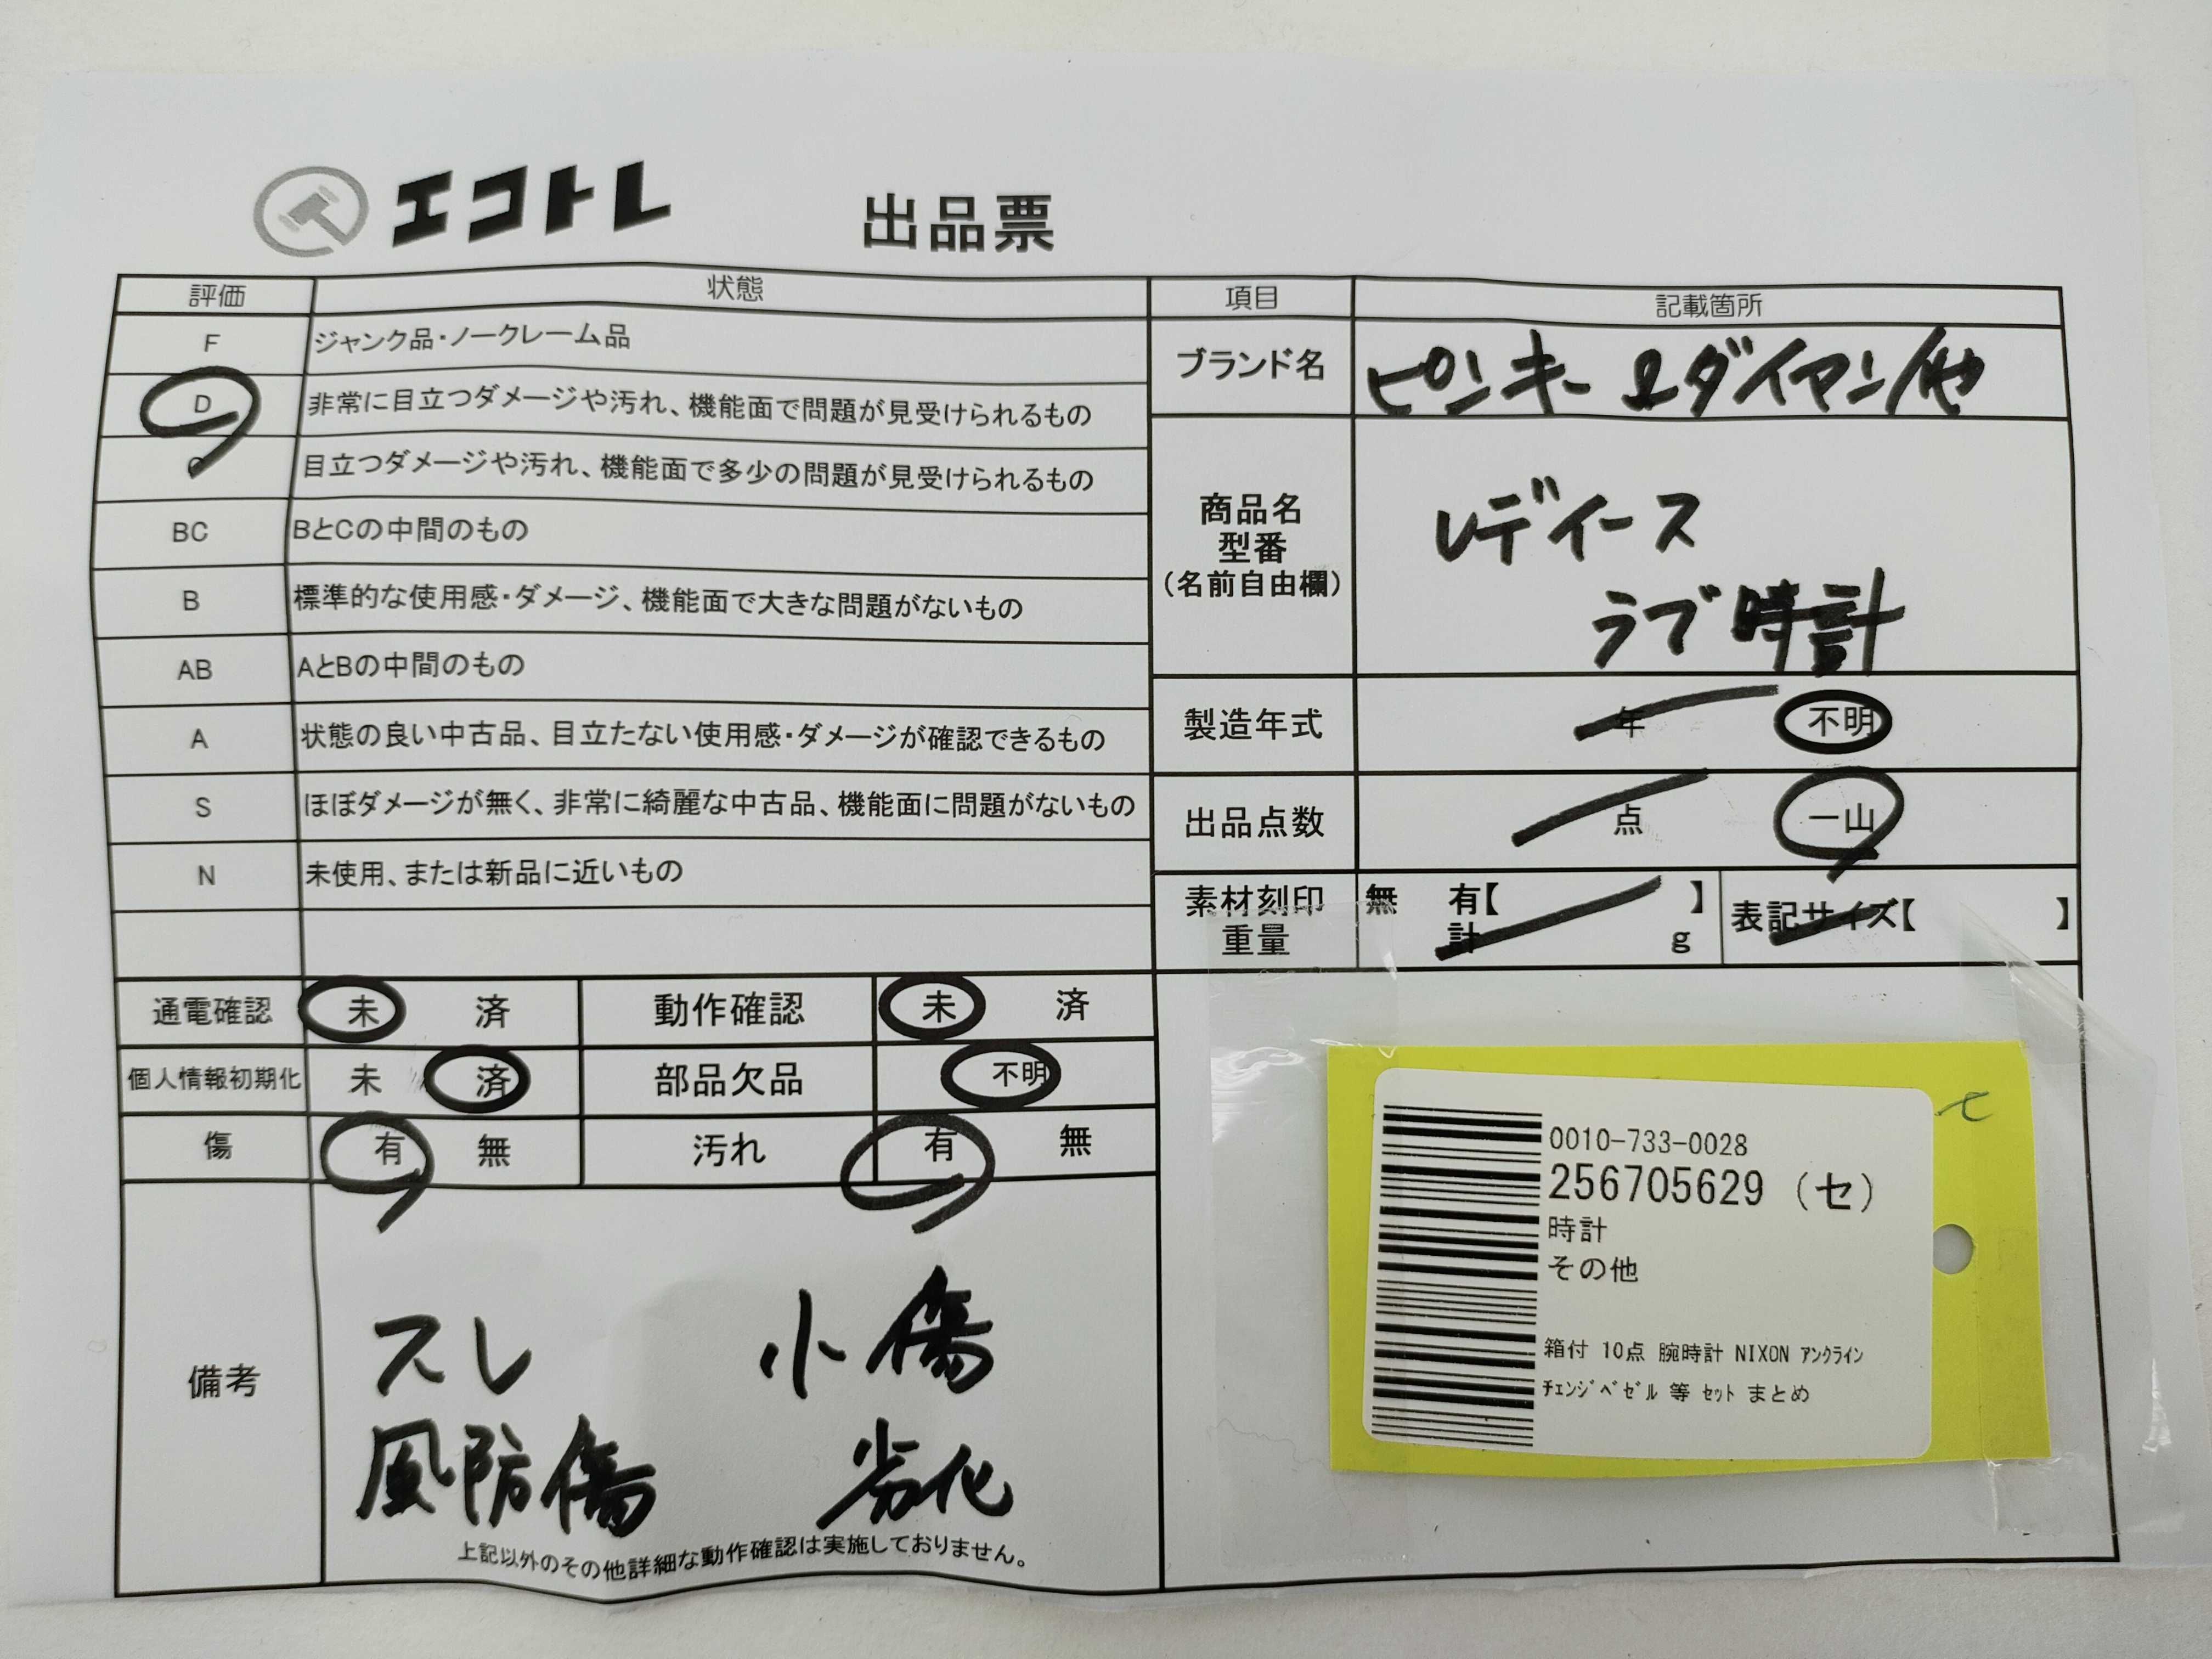 エコトレ 出品票
評価 状態
F ジャンク品・ノークレーム品
D 非常に目立つダメージや汚れ、機能面で問題が見受けられるもの
C 目立つダメージや汚れ、機能面で多少の問題が見受けられるもの
BC BとCの中間のもの
B 標準的な使用感・ダメージ、機能面で大きな問題がないもの
AB AとBの中間のもの
A 状態の良い中古品、目立たない使用感・ダメージが確認できるもの
S ほぼダメージが無く、非常に綺麗な中古品、機能面に問題がないもの
N 未使用、または新品に近いもの
項目 記載箇所
ブランド名 ピンキー&ダイアン/他
商品名
型番
(名前自由欄)
レディース
ラブ時計
製造年式 年 不明
出品点数 点 一山
素材刻印 無 有【 】 表記サイズ【 】
重量 計 g
通電確認 未 済 動作確認 未 済
個人情報初期化 未 済 部品欠品 不明
傷 有 無 汚れ 有 無
備考
スレ 小傷
風防傷 劣化
上記以外のその他詳細な動作確認は実施しておりません。
セ
0010-733-0028
256705629 (セ)
時計
その他
箱付 10点 腕時計 NIXON ｱﾝｸﾗｲﾝ
ﾁｪﾝｼﾞﾍﾞｾﾞﾙ 等 ｾｯﾄ まとめ